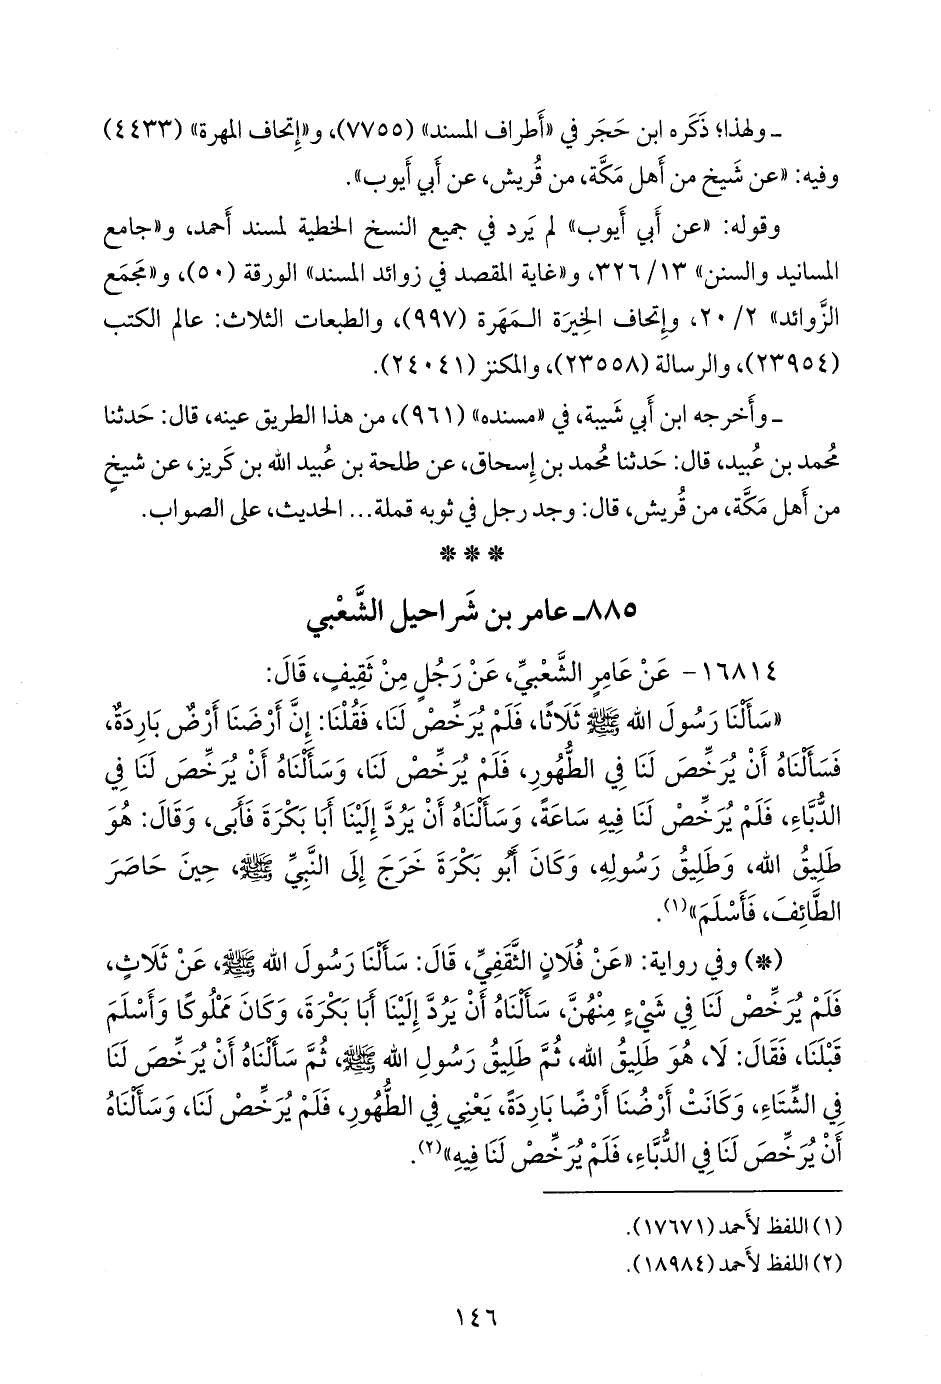 ـ ولهذا؛ ذَكَره ابن حَجَر في «أَطراف المسند» (٧٧٥٥)، و«إِتحاف المهرة» (٤٤٣٣)
وفيه: «عن شَيخ من أَهل مَكَّة، من قُريش، عن أَبي أَيوب».
وقوله: «عن أَبي أَيوب» لم يَرد في جميع النسخ الخطية لمسند أَحمد، و«جامع
المسانيد والسنن» ١٣/ ٣٢٦، و«غاية المقصد في زوائد المسند» الورقة (٥٠)، و«مَجمَع
الزَّوائد» ٢/ ٢٠، وإِتحاف الخِيرَة الـمَهَرة (٩٩٧)، والطبعات الثلاث: عالم الكتب
(٢٣٩٥٤)، والرسالة (٢٣٥٥٨)، والمكنز (٢٤٠٤١).
ـ وأَخرجه ابن أَبي شَيبة، في «مسنده» (٩٦١)، من هذا الطريق عينه، قال: حَدثنا
مُحمد بن عُبيد، قال: حَدثنا مُحمد بن إِسحاق، عن طلحة بن عُبيد الله بن كَريز، عن شيخٍ
من أَهل مَكَّة، من قُريش، قال: وجد رجل في ثوبه قملة... الحديث، على الصواب.
* * *
٨٨٥ـ عامر بن شَراحيل الشَّعْبي
١٦٨١٤ - عَنْ عَامِرٍ الشَّعْبِيِّ، عَنْ رَجُلٍ مِنْ ثَقِيفٍ، قَالَ:
«سَأَلْنَا رَسُولَ الله ﷺ ثَلَاثًا، فَلَمْ يُرَخِّصْ لَنَا، فَقُلْنَا: إِنَّ أَرْضَنَا أَرْضٌ بَارِدَةٌ،
فَسَأَلْنَاهُ أَنْ يُرَخِّصَ لَنَا فِي الطُّهُورِ، فَلَمْ يُرَخِّصْ لَنَا، وَسَأَلْنَاهُ أَنْ يُرَخِّصَ لَنَا فِي
الدُّبَّاءِ، فَلَمْ يُرَخِّصْ لَنَا فِيهِ سَاعَةً، وَسَأَلْنَاهُ أَنْ يَرُدَّ إِلَيْنَا أَبَا بَكْرَةَ فَأَبَى، وَقَالَ: هُوَ
طَلِيقُ الله، وَطَلِيقُ رَسُولِهِ، وَكَانَ أَبُو بَكْرَةَ خَرَجَ إِلَى النَّبِيِّ ﷺ، حِينَ حَاصَرَ
الطَّائِفَ، فَأَسْلَمَ»(١).
(*) وفي رواية: «عَنْ فُلَانٍ الثَّقَفِيِّ، قَالَ: سَأَلْنَا رَسُولَ الله ﷺ، عَنْ ثَلَاثٍ،
فَلَمْ يُرَخِّصْ لَنَا فِي شَيْءٍ مِنْهُنَّ، سَأَلْنَاهُ أَنْ يَرُدَّ إِلَيْنَا أَبَا بَكْرَةَ، وَكَانَ مَمْلُوكًا وَأَسْلَمَ
قَبْلَنَا، فَقَالَ: لَا، هُوَ طَلِيقُ الله، ثُمَّ طَلِيقُ رَسُولِ الله ﷺ، ثُمَّ سَأَلْنَاهُ أَنْ يُرَخِّصَ لَنَا
فِي الشِّتَاءِ، وَكَانَتْ أَرْضُنَا أَرْضًا بَارِدَةً، يَعْنِي فِي الطُّهُورِ، فَلَمْ يُرَخِّصْ لَنَا، وَسَأَلْنَاهُ
أَنْ يُرَخِّصَ لَنَا فِي الدُّبَّاءِ، فَلَمْ يُرَخِّصْ لَنَا فِيهِ»(٢).
(١) اللفظ لأَحمد (١٧٦٧١).
(٢) اللفظ لأَحمد (١٨٩٨٤).
١٤٦